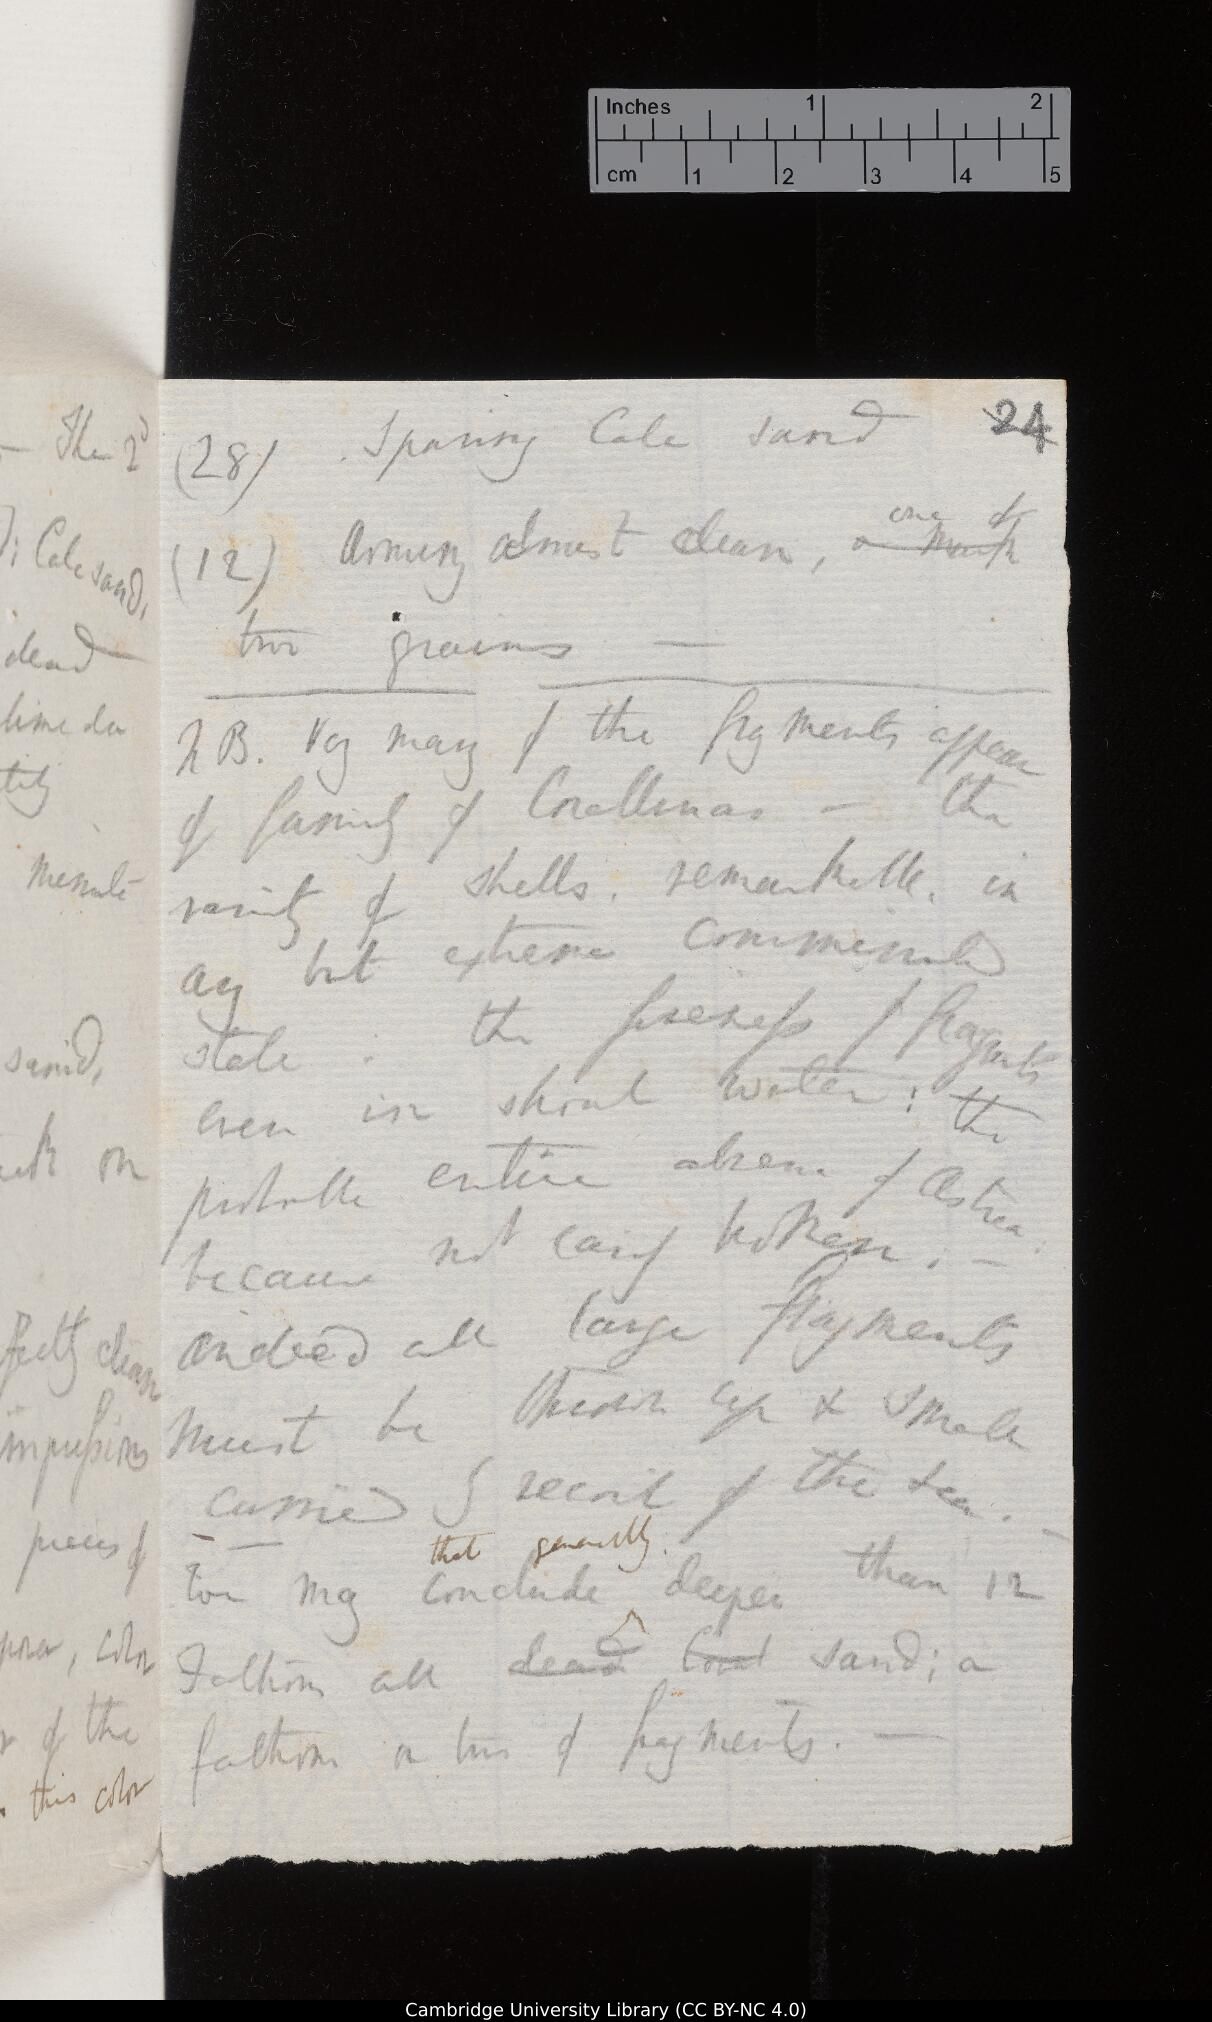 Inches 1 2
cm 1 2 3 4 5
24
(28) Sparing Calc sand
one or
(12) Arming almost clean, a mark
two grains —
N B. Very many of the fragments appear
of family of Corallinas — the
rarity of shells. remarkable. in
any but extreme comminuted
state. the fineness of fragments
even in shoal water: the
probable entire absence of Astrea.
because not easily broken. —
indeed all large fragments
must be thrown up & small
carried by recoil of the sea. —
that generally
We may conclude deeper than 12
Fathoms all dead Coral sand; a
fathom or two of fragments. —
— The 2d
; Calc sand,
dead —
time do
minute
sand,
on
clean
impressions
pieces of
, color
of the
this color
Cambridge University Library (CC BY-NC 4.0)